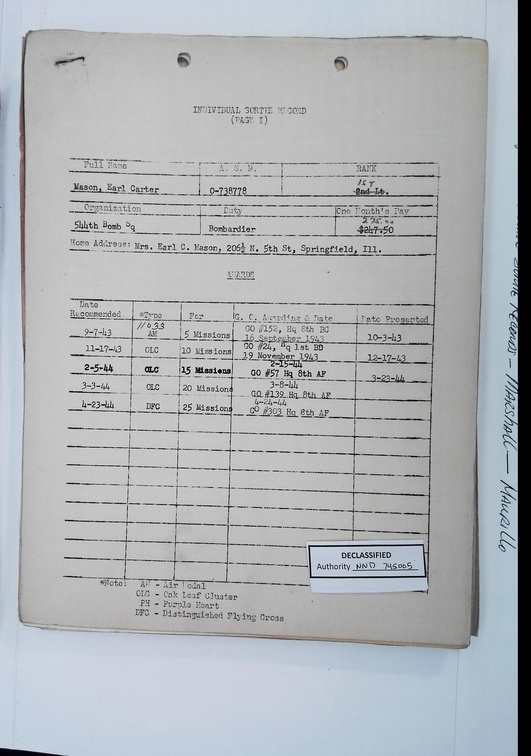 INDIVIDUAL SORTIE RECORD
(PAGE I)
Full Name A. S. N. RANK
Mason, Earl Carter 0-738778 1ST 2nd Lt.
Organization Duty One Month's Pay
544th Bomb Sq Bombardier $247.50
Home Address: Mrs. Earl C. Mason, 206½ N. 5th St, Springfield, Ill.
AWARDS
Date Recommended *Type For G. O. Awarding & Date Date Presented
9-7-43 AM 5 Missions GO #152, Hq 8th BC 16 September 1943 10-3-43
11-17-43 OLC 10 Missions GO #24, Hq 1st BD 19 November 1943 12-17-43
2-5-44 OLC 15 Missions 2-15-44 GO #57 Hq 8th AF 3-23-44
3-3-44 OLC 20 Missions 3-8-44 GO #139 Hq 8th AF
4-23-44 DFC 25 Missions 4-24-44 GO #303 Hq 8th AF
DECLASSIFIED
Authority NND 745005
*Note: AM - Air Medal
OLC - Oak Leaf Cluster
PH - Purple Heart
DFC - Distinguished Flying Cross
Records - Marshall - Maurillo